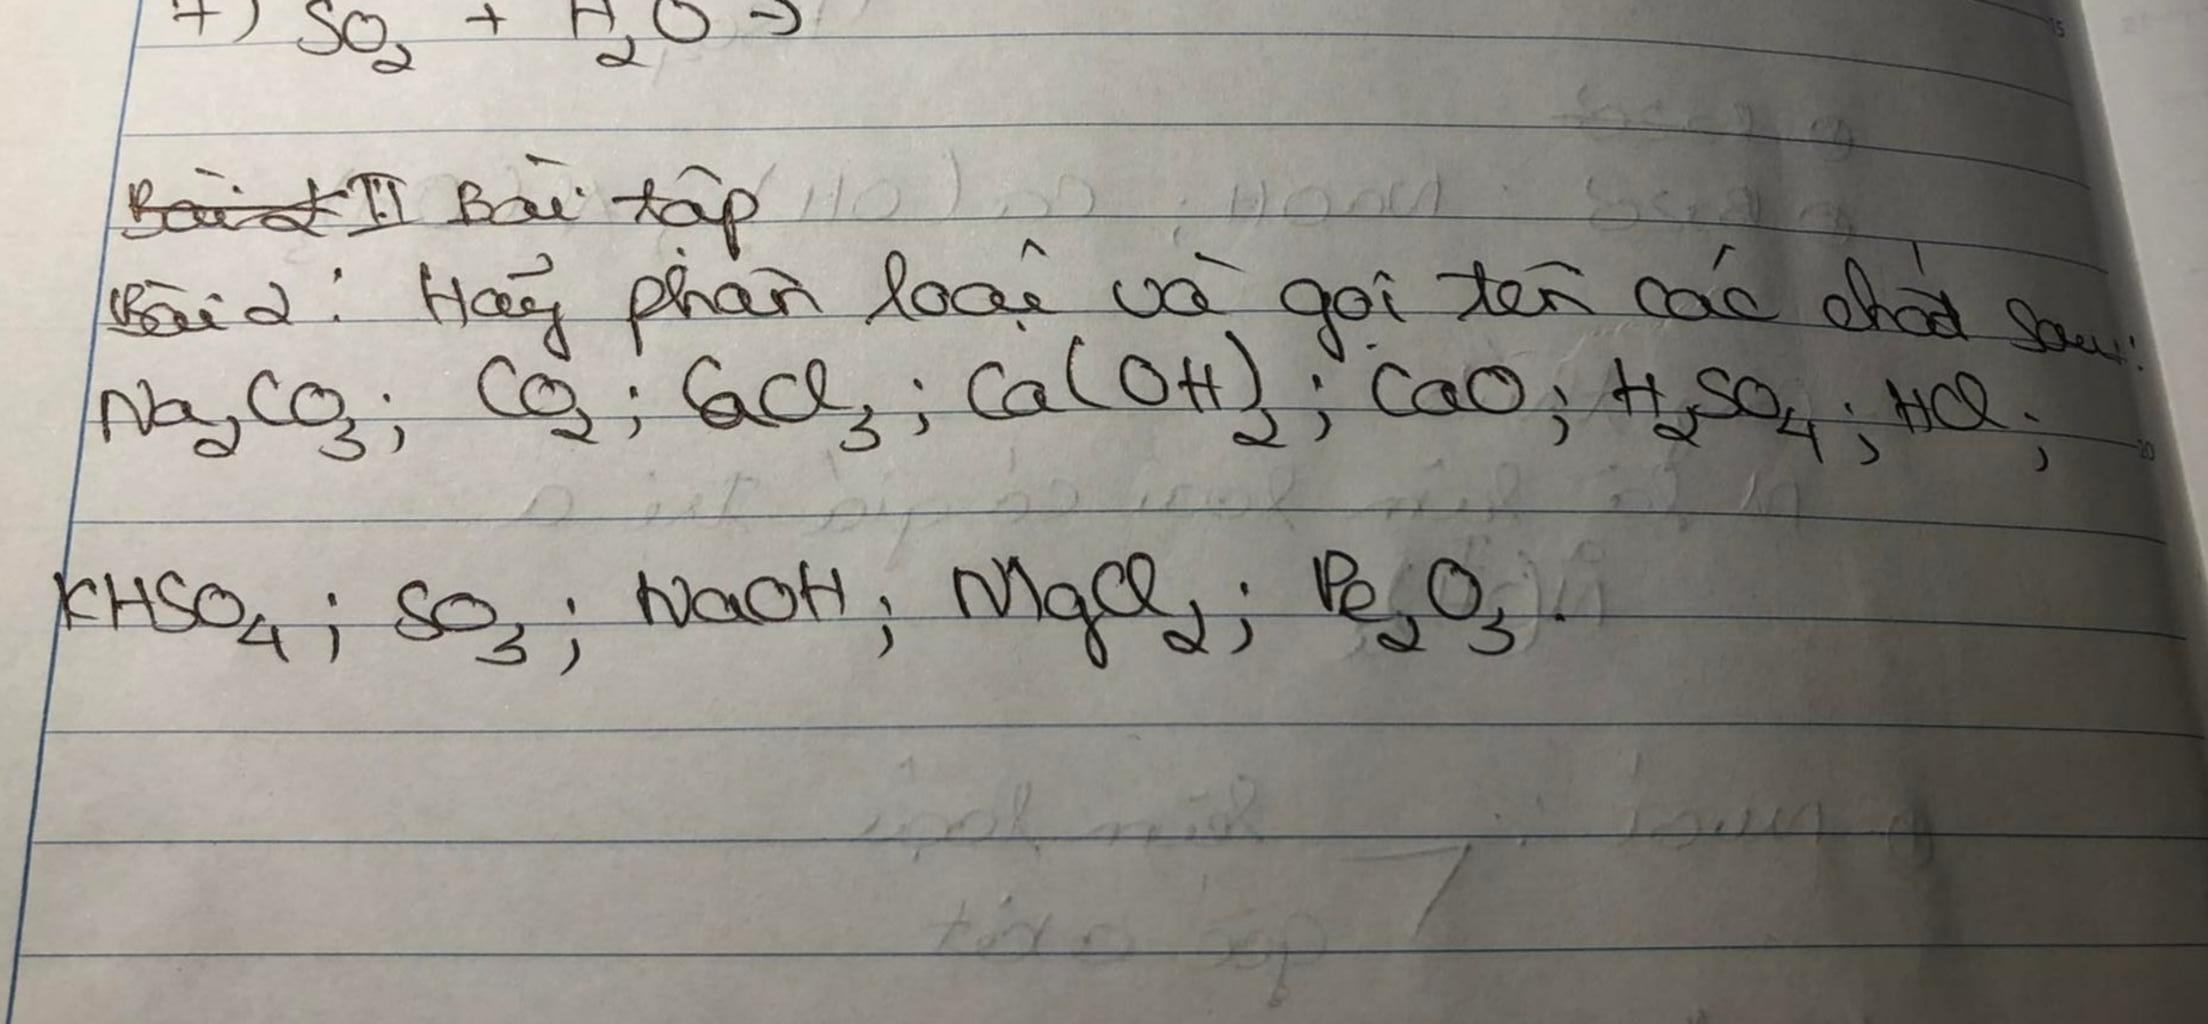 7) SO₂ + H₂O →
II Bài tập
Bài 2: Hãy phân loại và gọi tên các chất sau:
Na₂CO₃; CO₂; CaCl₃; Ca(OH)₂; CaO; H₂SO₄; HCl;
KHSO₄; SO₃; NaOH; MgCl₂; Fe₂O₃.